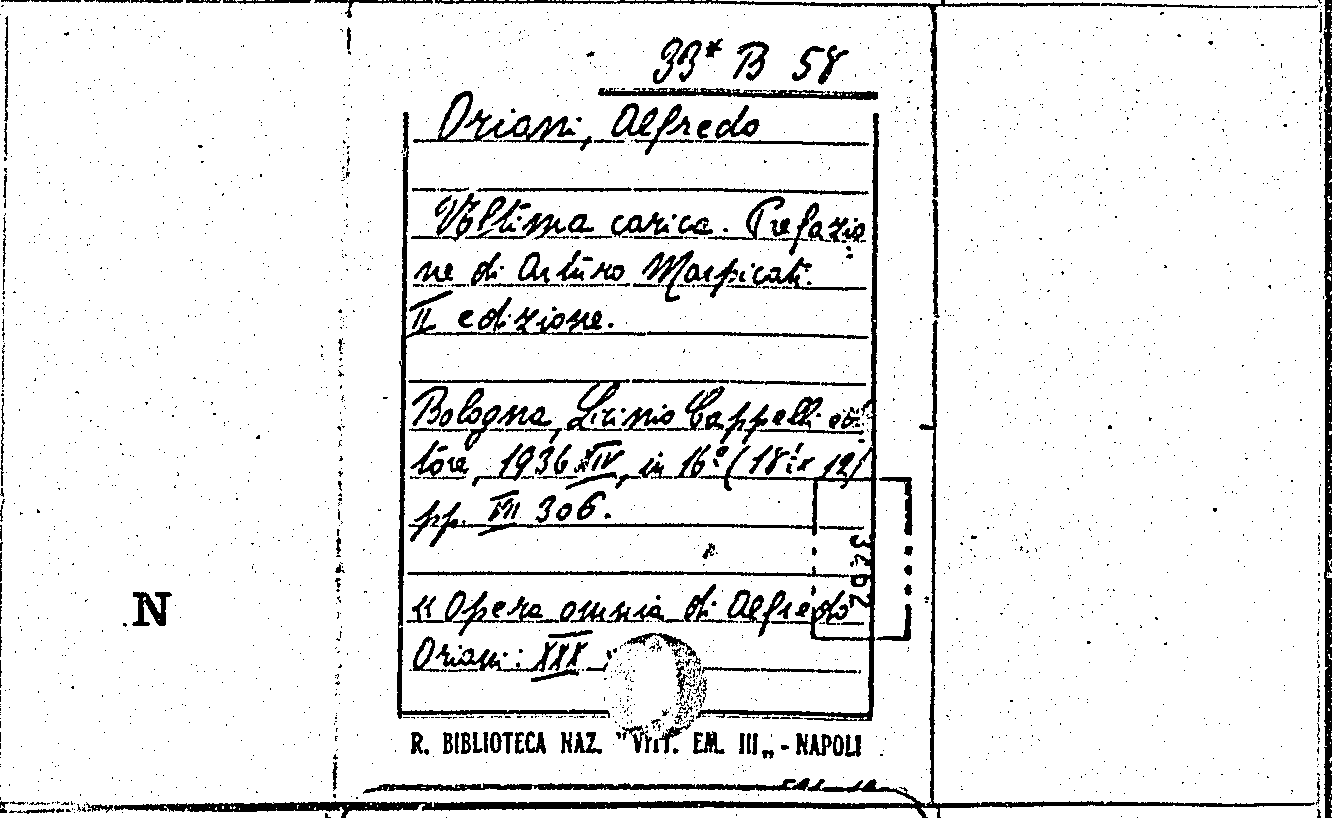 33* B 58
Oriani, Alfredo
Ultima carica. Prefazio
ne di Arturo Marpicati.
II edizione.
Bologna, Licinio Cappelli edi
tore, 1936 XIV, in 16° (18 x 12)
pp. VII 306.
3262
« Opera omnia di Alfredo
Oriani: XXX
N
R. BIBLIOTECA NAZ. "VITT. EM. III„ - NAPOLI